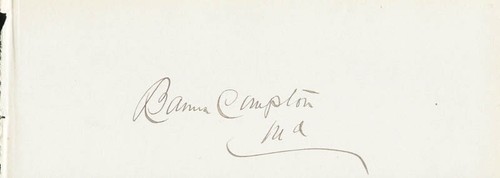 Barnes Compton
Md